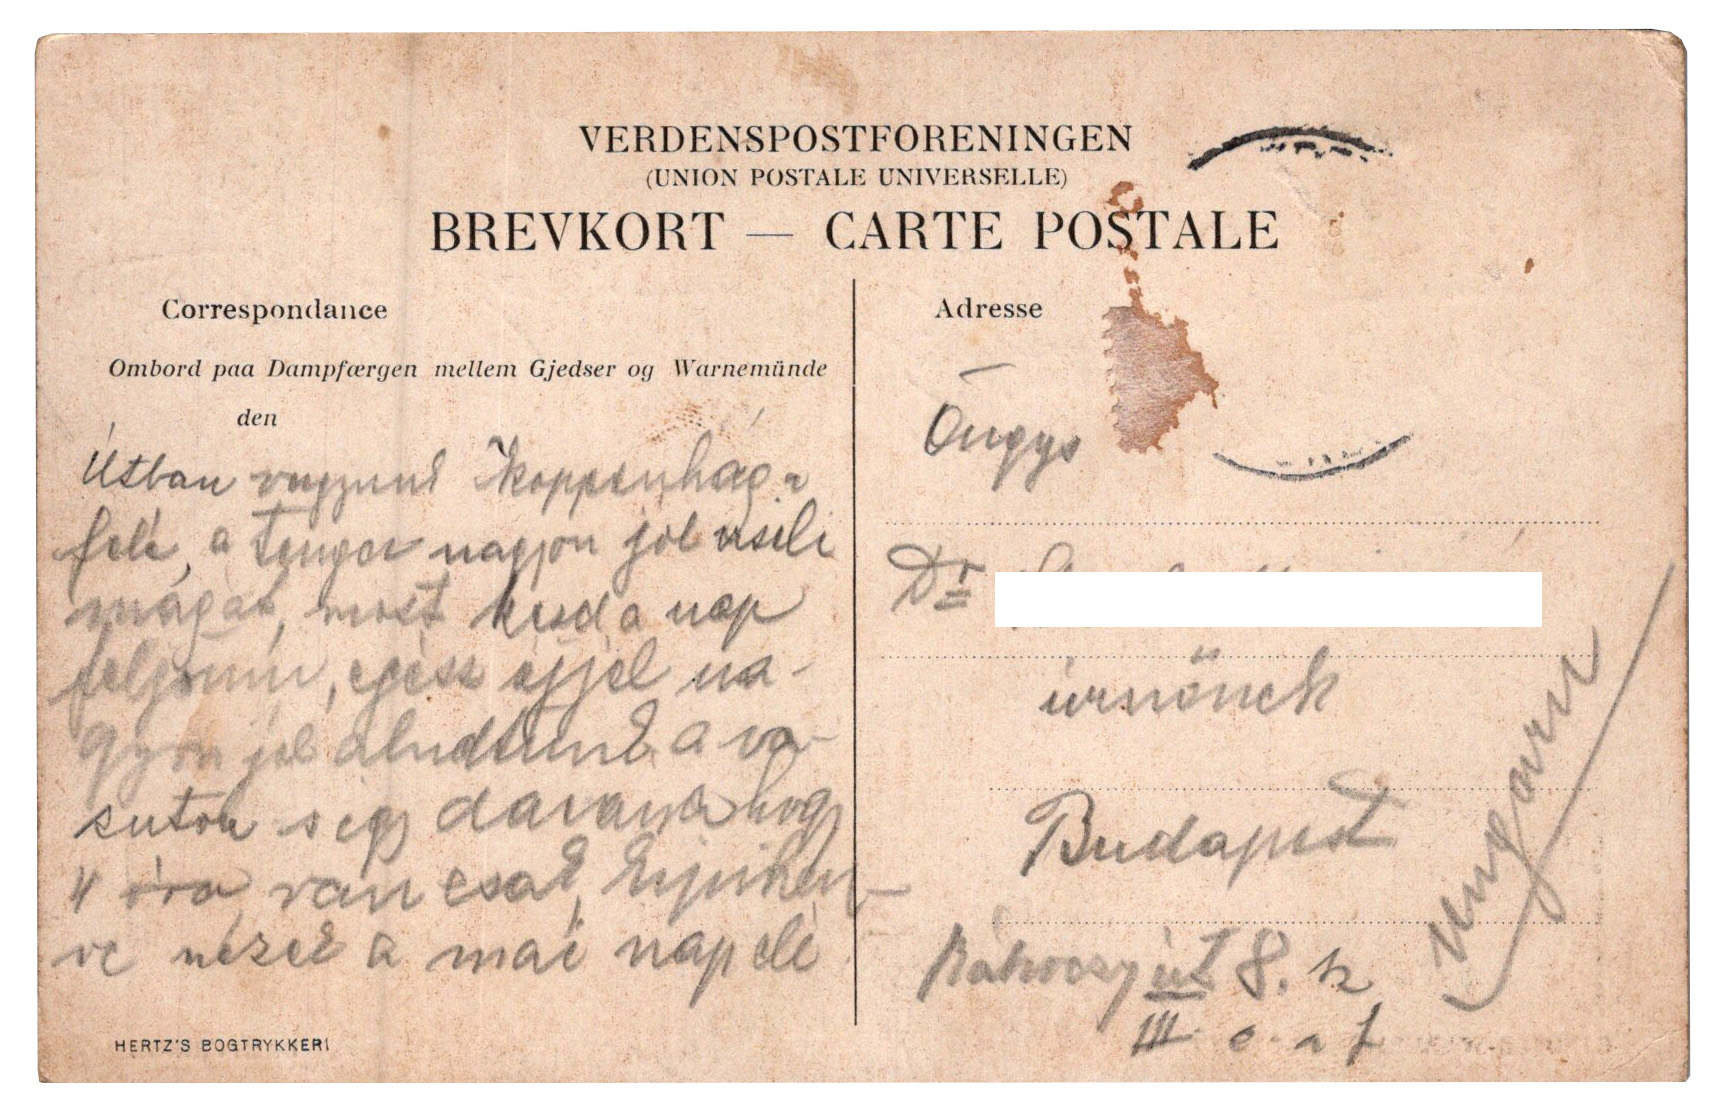 VERDENSPOSTFORENINGEN
(UNION POSTALE UNIVERSELLE)
BREVKORT — CARTE POSTALE
Correspondance
Ombord paa Dampfærgen mellem Gjedser og Warnemünde
den
Útban vagyunk Koppenhága
felé, a tenger nagyon jól viseli
magát, most kezd a nap
feljönni, egész éjjel na-
gyon jól aludtunk a va-
suton s egy
4 óra van csak,
ve nézek a mai nap elé
HERTZ'S BOGTRYKKERI
Adresse
Őngys
Dr
urnőnek
Budapest
Rákoczy út 8. sz
III e. a f
Ungarn